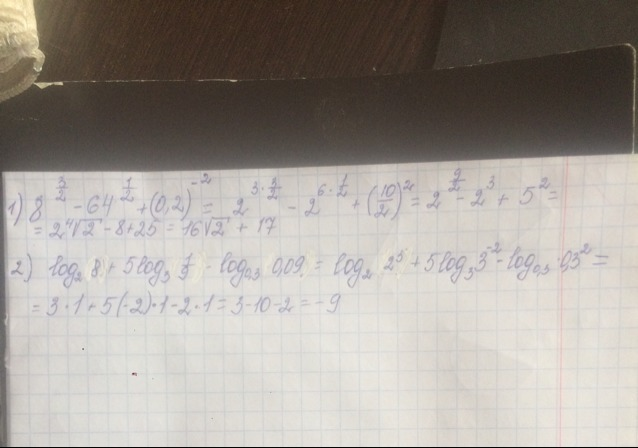 1) 8^(3/2) - 64^(1/2) + (0,2)^(-2) = 2^(3·3/2) - 2^(6·1/2) + (10/2)^2 = 2^(9/2) - 2^3 + 5^2 =
= 2^4√2 - 8 + 25 = 16√2 + 17
2) log_2 8 + 5log_3 1/9 - log_0,3 0,09 = log_2 2^3 + 5log_3 3^(-2) - log_0,3 0,3^2 =
= 3·1 + 5(-2)·1 - 2·1 = 3 - 10 - 2 = -9